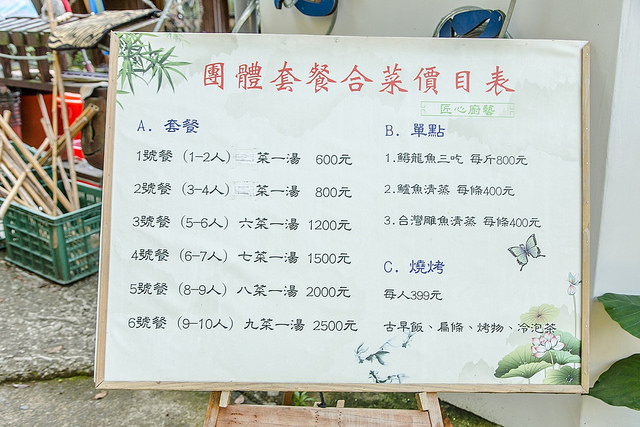 團體套餐合菜價目表
匠心廚藝
A. 套餐
1號餐 (1-2人) 三菜一湯 600元
2號餐 (3-4人) 菜一湯 800元
3號餐 (5-6人) 六菜一湯 1200元
4號餐 (6-7人) 七菜一湯 1500元
5號餐 (8-9人) 八菜一湯 2000元
6號餐 (9-10人) 九菜一湯 2500元
B. 單點
1.鱘龍魚三吃 每斤800元
2.鱸魚清蒸 每條400元
3.台灣雕魚清蒸 每條400元
C. 燒烤
每人399元
古早飯、扁條、烤物、冷泡茶